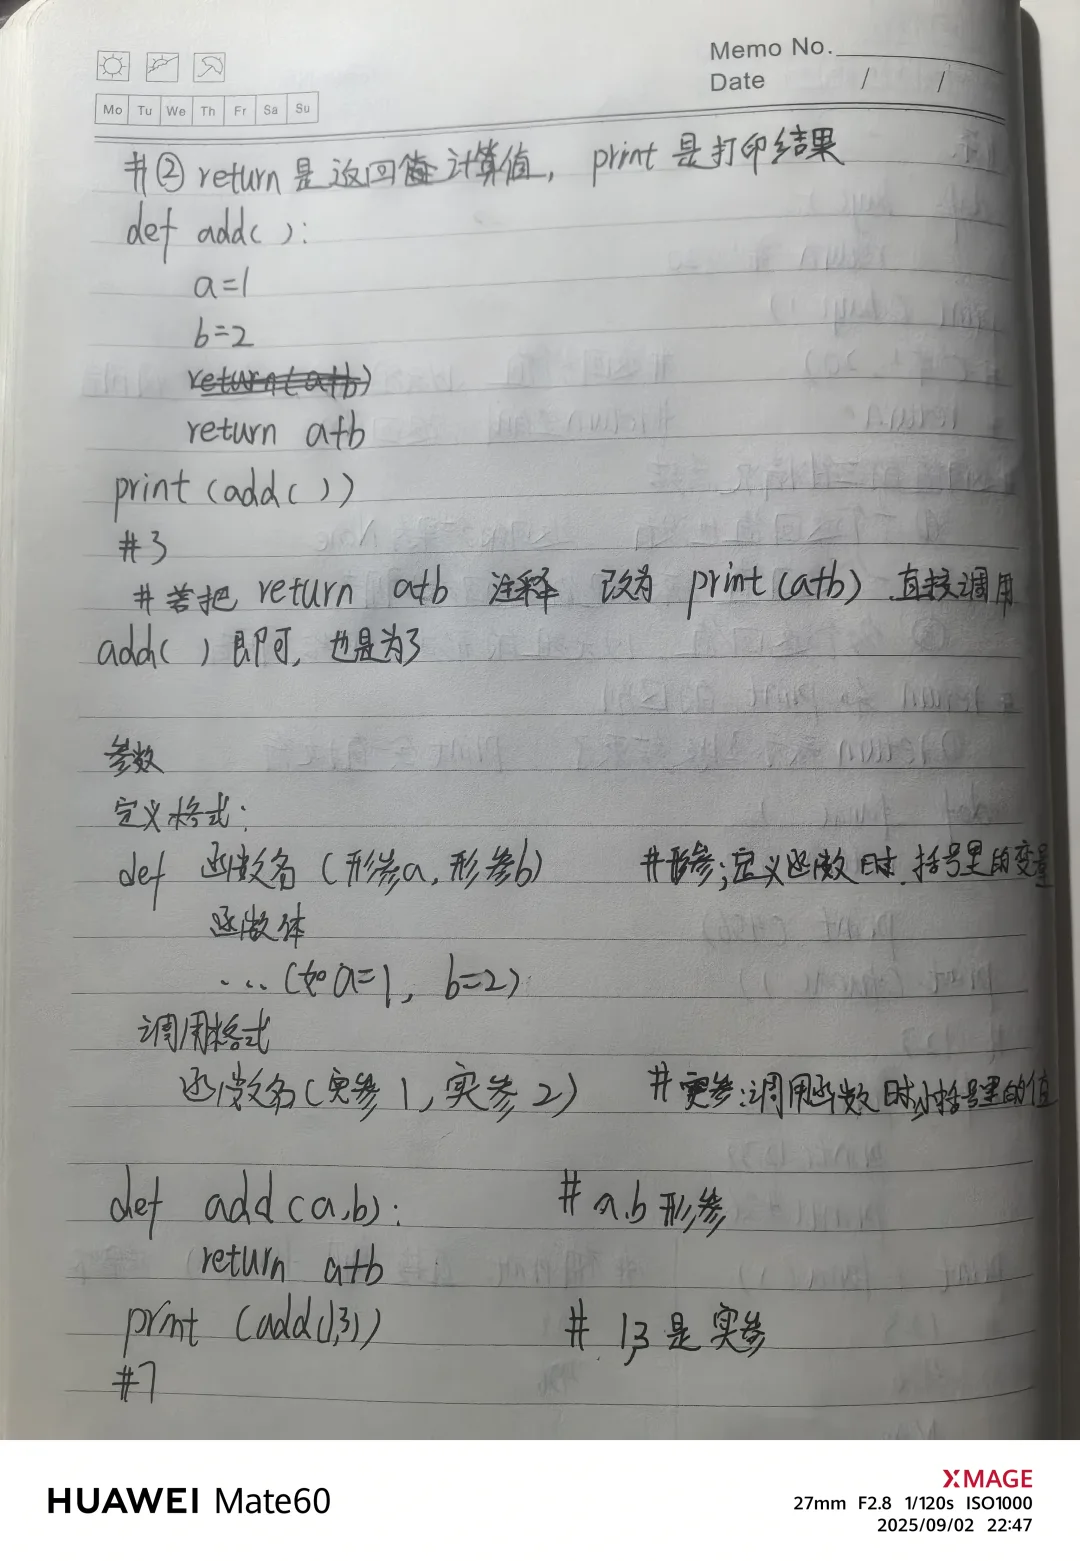 Memo No.
Date / /
Mo Tu We Th Fr Sa Su
#② return 是返回值 计算值, print 是打印结果
def add( ):
a=1
b=2
return(a+b)
return a+b
print (add( ))
#3
#若把 return a+b 注释 改为 print(a+b) 直接调用
add( ) 即可, 也是为3
参数
定义格式:
def 函数名 (形参a, 形参b) #形参;定义函数时,括号里的变量
函数体
... (如a=1, b=2)
调用格式
函数名(实参1,实参2) #实参:调用函数时小括号里的值
def add(a,b): # a,b 形参
return a+b
print (add(1,3)) # 1,3 是实参
#7
HUAWEI Mate60
XMAGE
27mm F2.8 1/120s ISO1000
2025/09/02 22:47